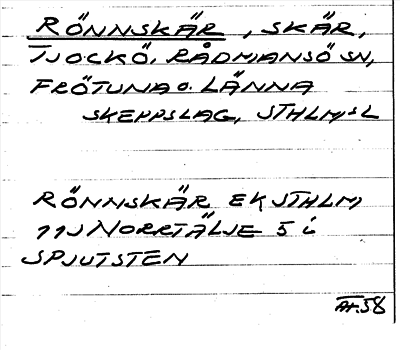 RÖNNSKÄR, SKÄR,
TJOCKÖ, RÅDMANSÖ SN,
FRÖTUNA o. LÄNNA
SKEPPSLAG, STHLMS L
RÖNNSKÄR EK STHLM
11J NORRTÄLJE 5 i
SPJUTSTEN
58